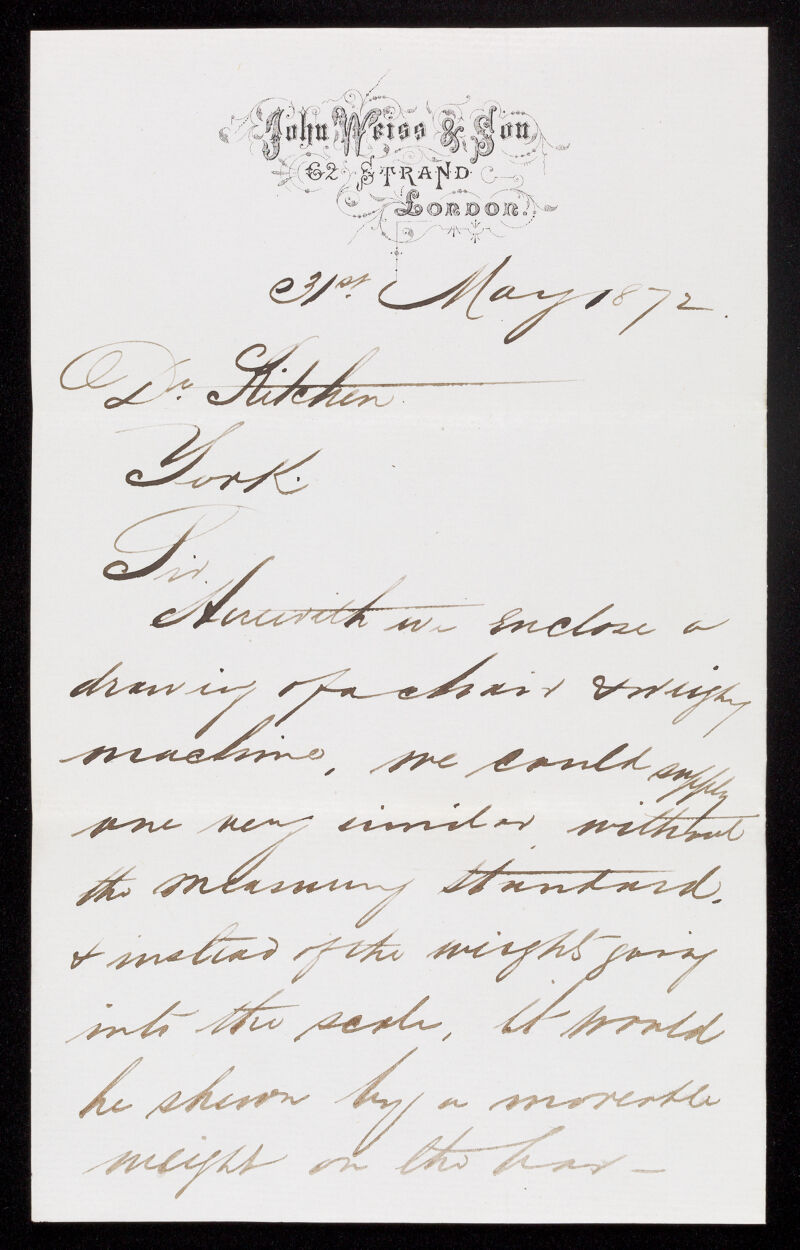 John Weiss & Son
62 Strand
London.
31st. May 1872.
Dr. Kitchen
York.
Sir
Herewith we enclose a
drawing of a chair & weighg
machine, we could supply
one very similar without
the measuring standard.
& instead of the weights going
into the scale, it would
be shewn by a moveable
weight on the bar –